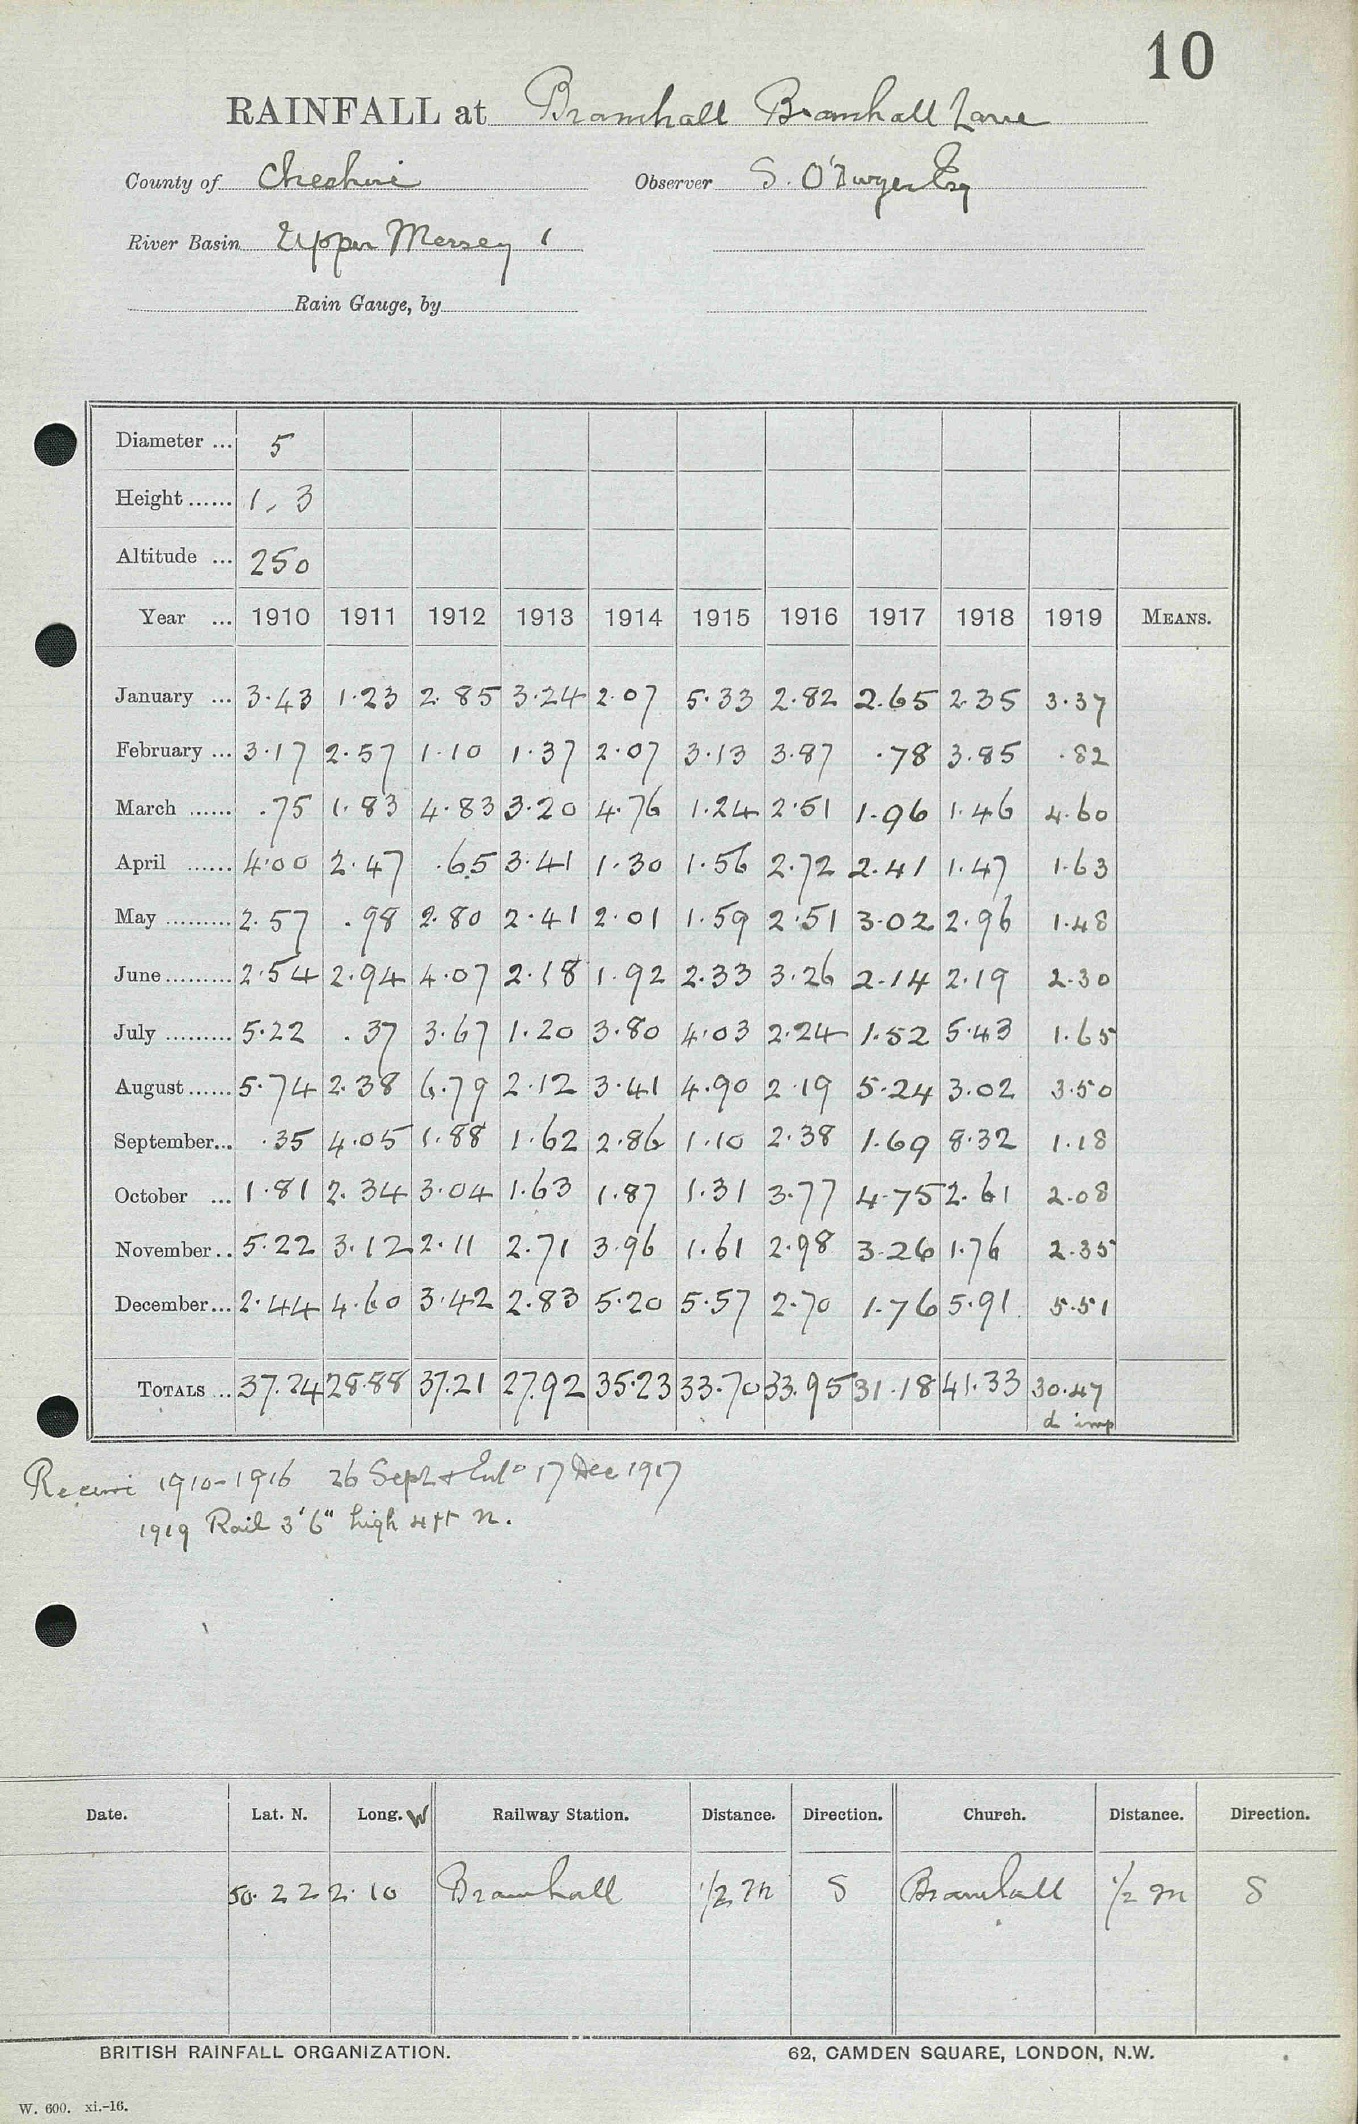 10
RAINFALL at Bramhall Bramhall Lane
County of Cheshire Observer S. O'Dwyer Esq
River Basin Upper Mersey 1
Rain Gauge, by
Diameter ... 5
Height ...... 1. 3
Altitude ... 250
Year ... 1910 1911 1912 1913 1914 1915 1916 1917 1918 1919 MEANS.
January ... 3.43 1.23 2.85 3.24 2.07 5.33 2.82 2.65 2.35 3.37
February ... 3.17 2.57 1.10 1.37 2.07 3.13 3.87 .78 3.85 .82
March ...... .75 1.83 4.83 3.20 4.76 1.24 2.51 1.96 1.46 4.60
April ...... 4.00 2.47 .65 3.41 1.30 1.56 2.72 2.41 1.47 1.63
May ......... 2.57 .98 2.80 2.41 2.01 1.59 2.51 3.02 2.96 1.48
June ......... 2.54 2.94 4.07 2.18 1.92 2.33 3.26 2.14 2.19 2.30
July ......... 5.22 .37 3.67 1.20 3.80 4.03 2.24 1.52 5.43 1.65
August ...... 5.74 2.38 6.79 2.12 3.41 4.90 2.19 5.24 3.02 3.50
September... .35 4.05 1.88 1.62 2.86 1.10 2.38 1.69 8.32 1.18
October ... 1.81 2.34 3.04 1.63 1.87 1.31 3.77 4.75 2.61 2.08
November .. 5.22 3.12 2.11 2.71 3.96 1.61 2.98 3.26 1.76 2.35
December... 2.44 4.60 3.42 2.83 5.20 5.57 2.70 1.76 5.91 5.51
TOTALS ... 37.24 28.88 37.21 27.92 35.23 33.70 33.95 31.18 41.33 30.47
d imp
1910-1916 26 Sept & 17 Dec 1917
1919 Rail 3'6" high 4 ft N.
Date. Lat. N. Long. W Railway Station. Distance. Direction. Church. Distance. Direction.
50. 22 2. 10 Bramhall 1/2 m S Bramhall 1/2 m S
BRITISH RAINFALL ORGANIZATION. 62, CAMDEN SQUARE, LONDON, N.W.
W. 600. xi.-16.